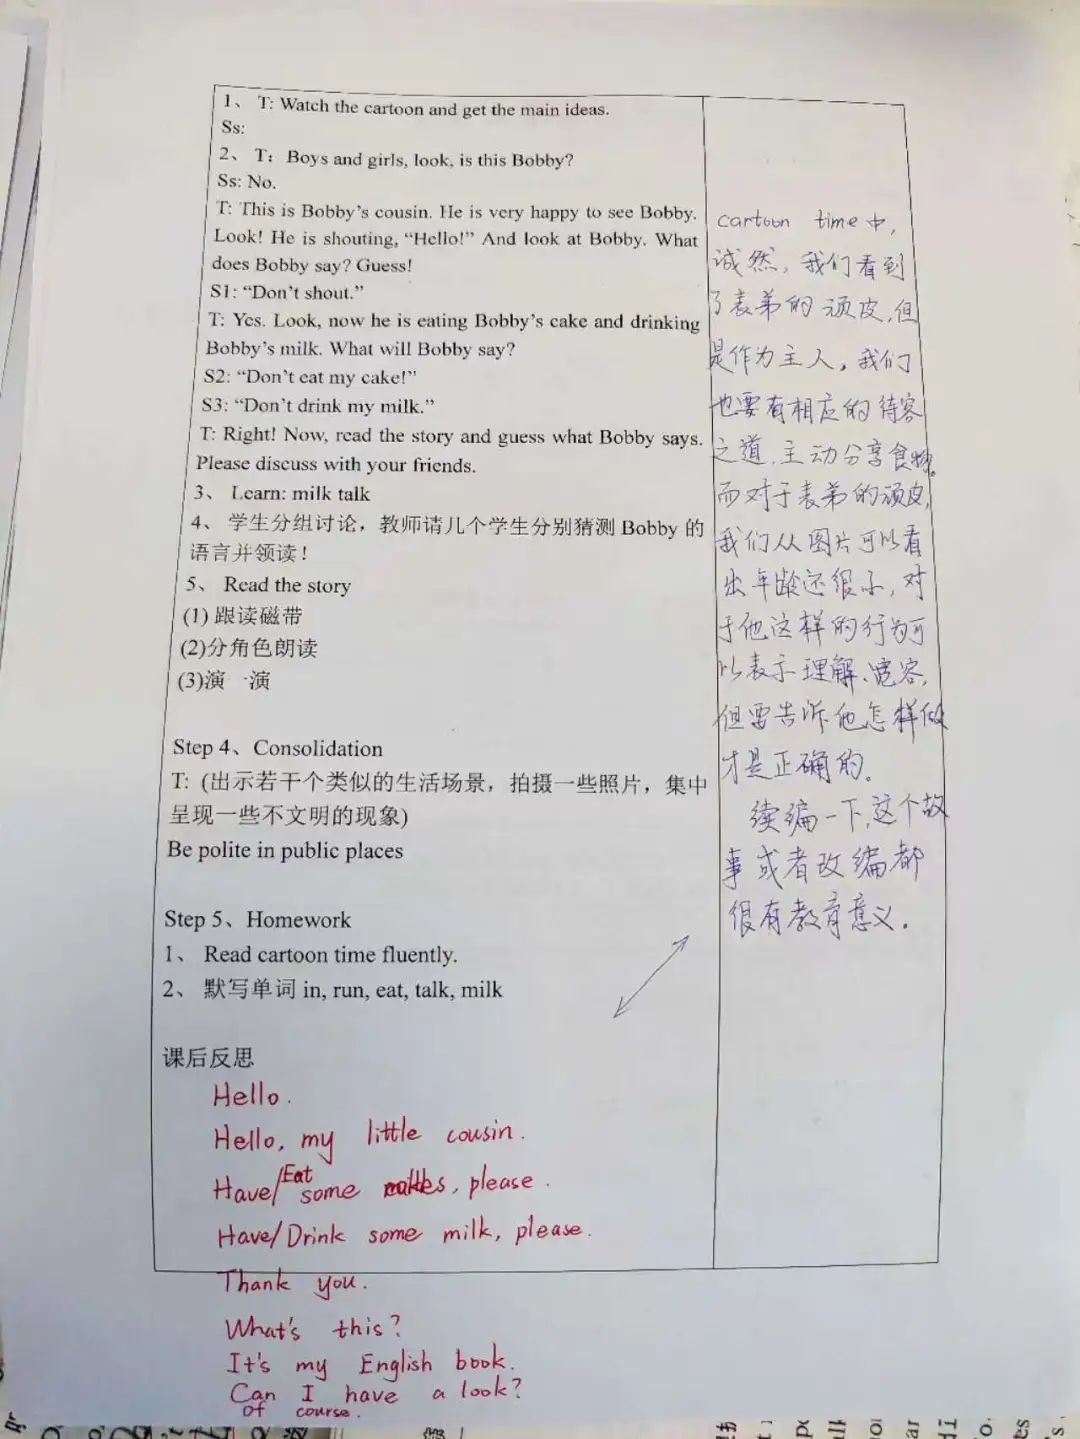 1、 T: Watch the cartoon and get the main ideas.
Ss:
2、 T: Boys and girls, look, is this Bobby?
Ss: No.
T: This is Bobby's cousin. He is very happy to see Bobby.
Look! He is shouting, "Hello!" And look at Bobby. What
does Bobby say? Guess!
S1: "Don't shout."
T: Yes. Look, now he is eating Bobby's cake and drinking
Bobby's milk. What will Bobby say?
S2: "Don't eat my cake!"
S3: "Don't drink my milk."
T: Right! Now, read the story and guess what Bobby says.
Please discuss with your friends.
3、 Learn: milk talk
4、 学生分组讨论，教师请几个学生分别猜测 Bobby 的
语言并领读！
5、 Read the story
(1) 跟读磁带
(2)分角色朗读
(3)演一演
Step 4、Consolidation
T: (出示若干个类似的生活场景，拍摄一些照片，集中
呈现一些不文明的现象)
Be polite in public places
Step 5、Homework
1、 Read cartoon time fluently.
2、 默写单词 in, run, eat, talk, milk
课后反思
Hello.
Hello, my little cousin.
Have/Eat some , please.
Have/Drink some milk, please.
Thank you.
What's this?
It's my English book.
Can I have a look?
Of course.
cartoon time中，
诚然，我们看到
了表弟的顽皮，但
是作为主人，我们
也要有相应的待客
之道，主动分享食物。
而对于表弟的顽皮，
我们从图片可以看
出年龄还很小，对
于他这样的行为可
以表示理解、宽容，
但要告诉他怎样做
才是正确的。
续编一下，这个故
事或者改编都
很有教育意义。